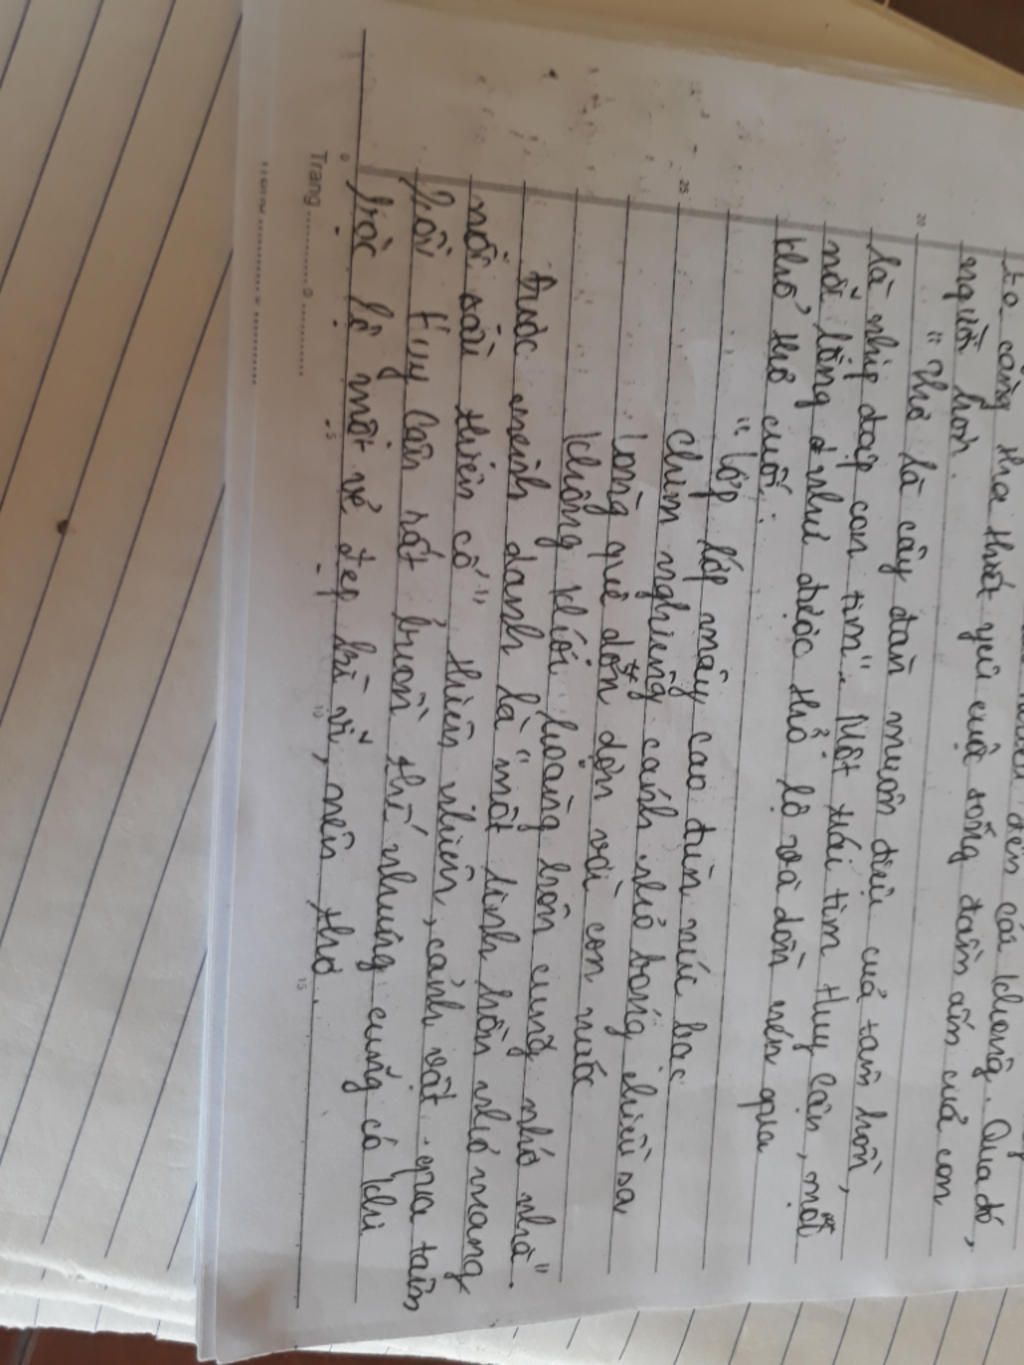 to càng tha thiết yêu cuộc sống đầm ấm của con
người hơn.
"Thơ là cây đàn muôn điệu của tâm hồn,
là nhịp đập con tim". Một trái tim Huy Cận, một
nỗi lòng như được thổ lộ và dồn nén qua
khổ thơ cuối:
"Lớp lớp mây cao đùn núi bạc
Chim nghiêng cánh nhỏ bóng chiều sa
Lòng quê dờn dợn vời con nước
Không khói hoàng hôn cũng nhớ nhà".
Được mệnh danh là "một linh hồn nhỏ mang
nỗi sầu thiên cổ", thiên nhiên, cảnh vật qua tâm
hồn Huy Cận rất buồn thế nhưng cũng có khi
bộc lộ một vẻ đẹp kì vĩ, nên thơ.
Trang
20
25
0
5
10
15